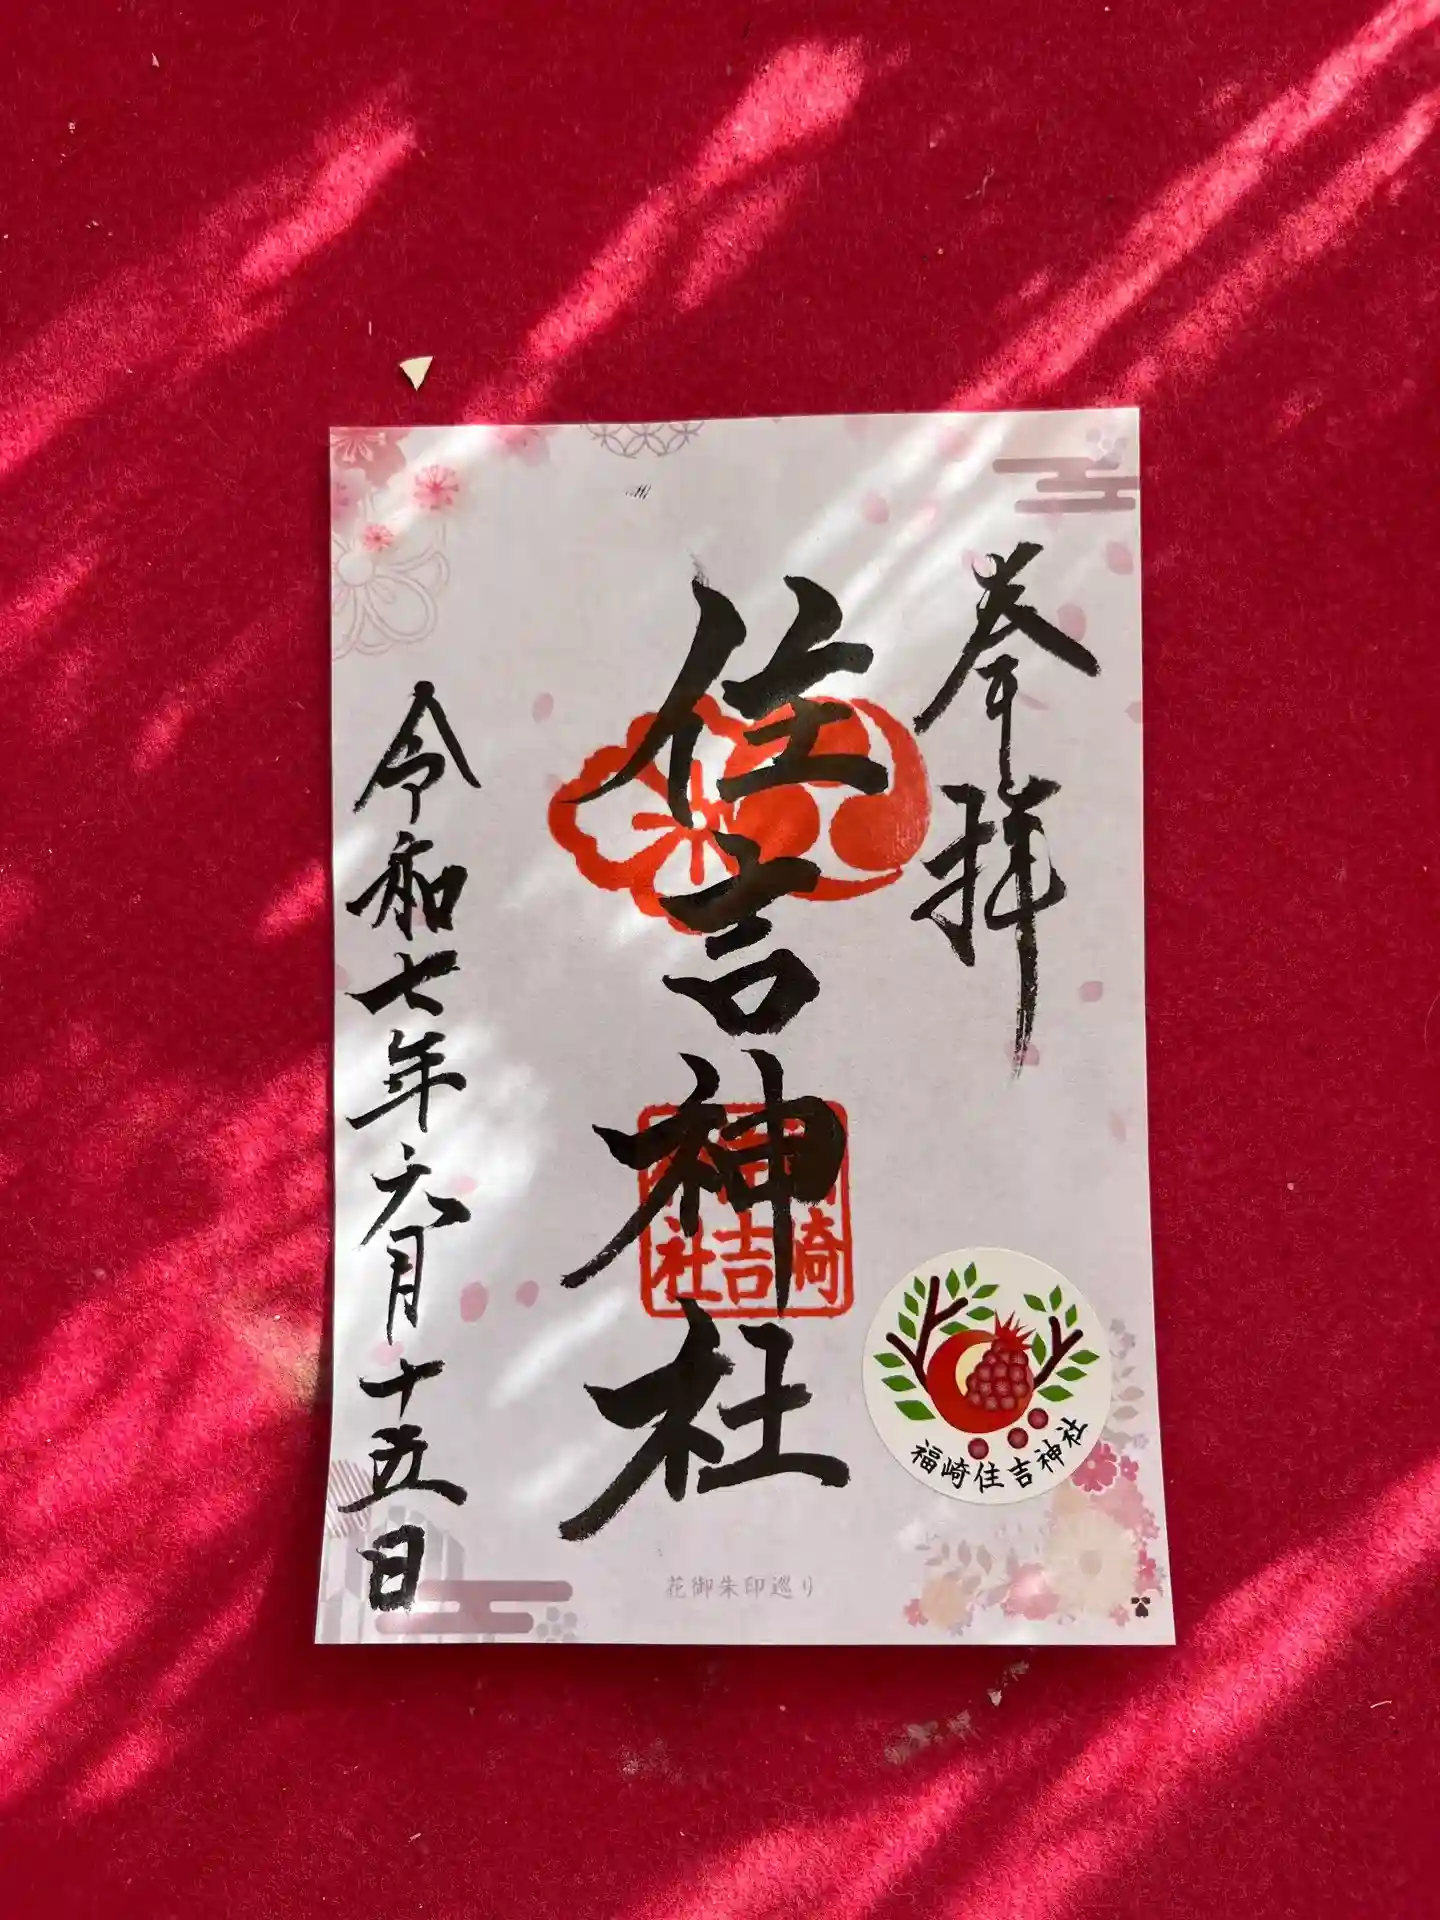 奉拝
住吉神社
令和七年六月十五日
崎
吉
社
福崎住吉神社
花御朱印巡り